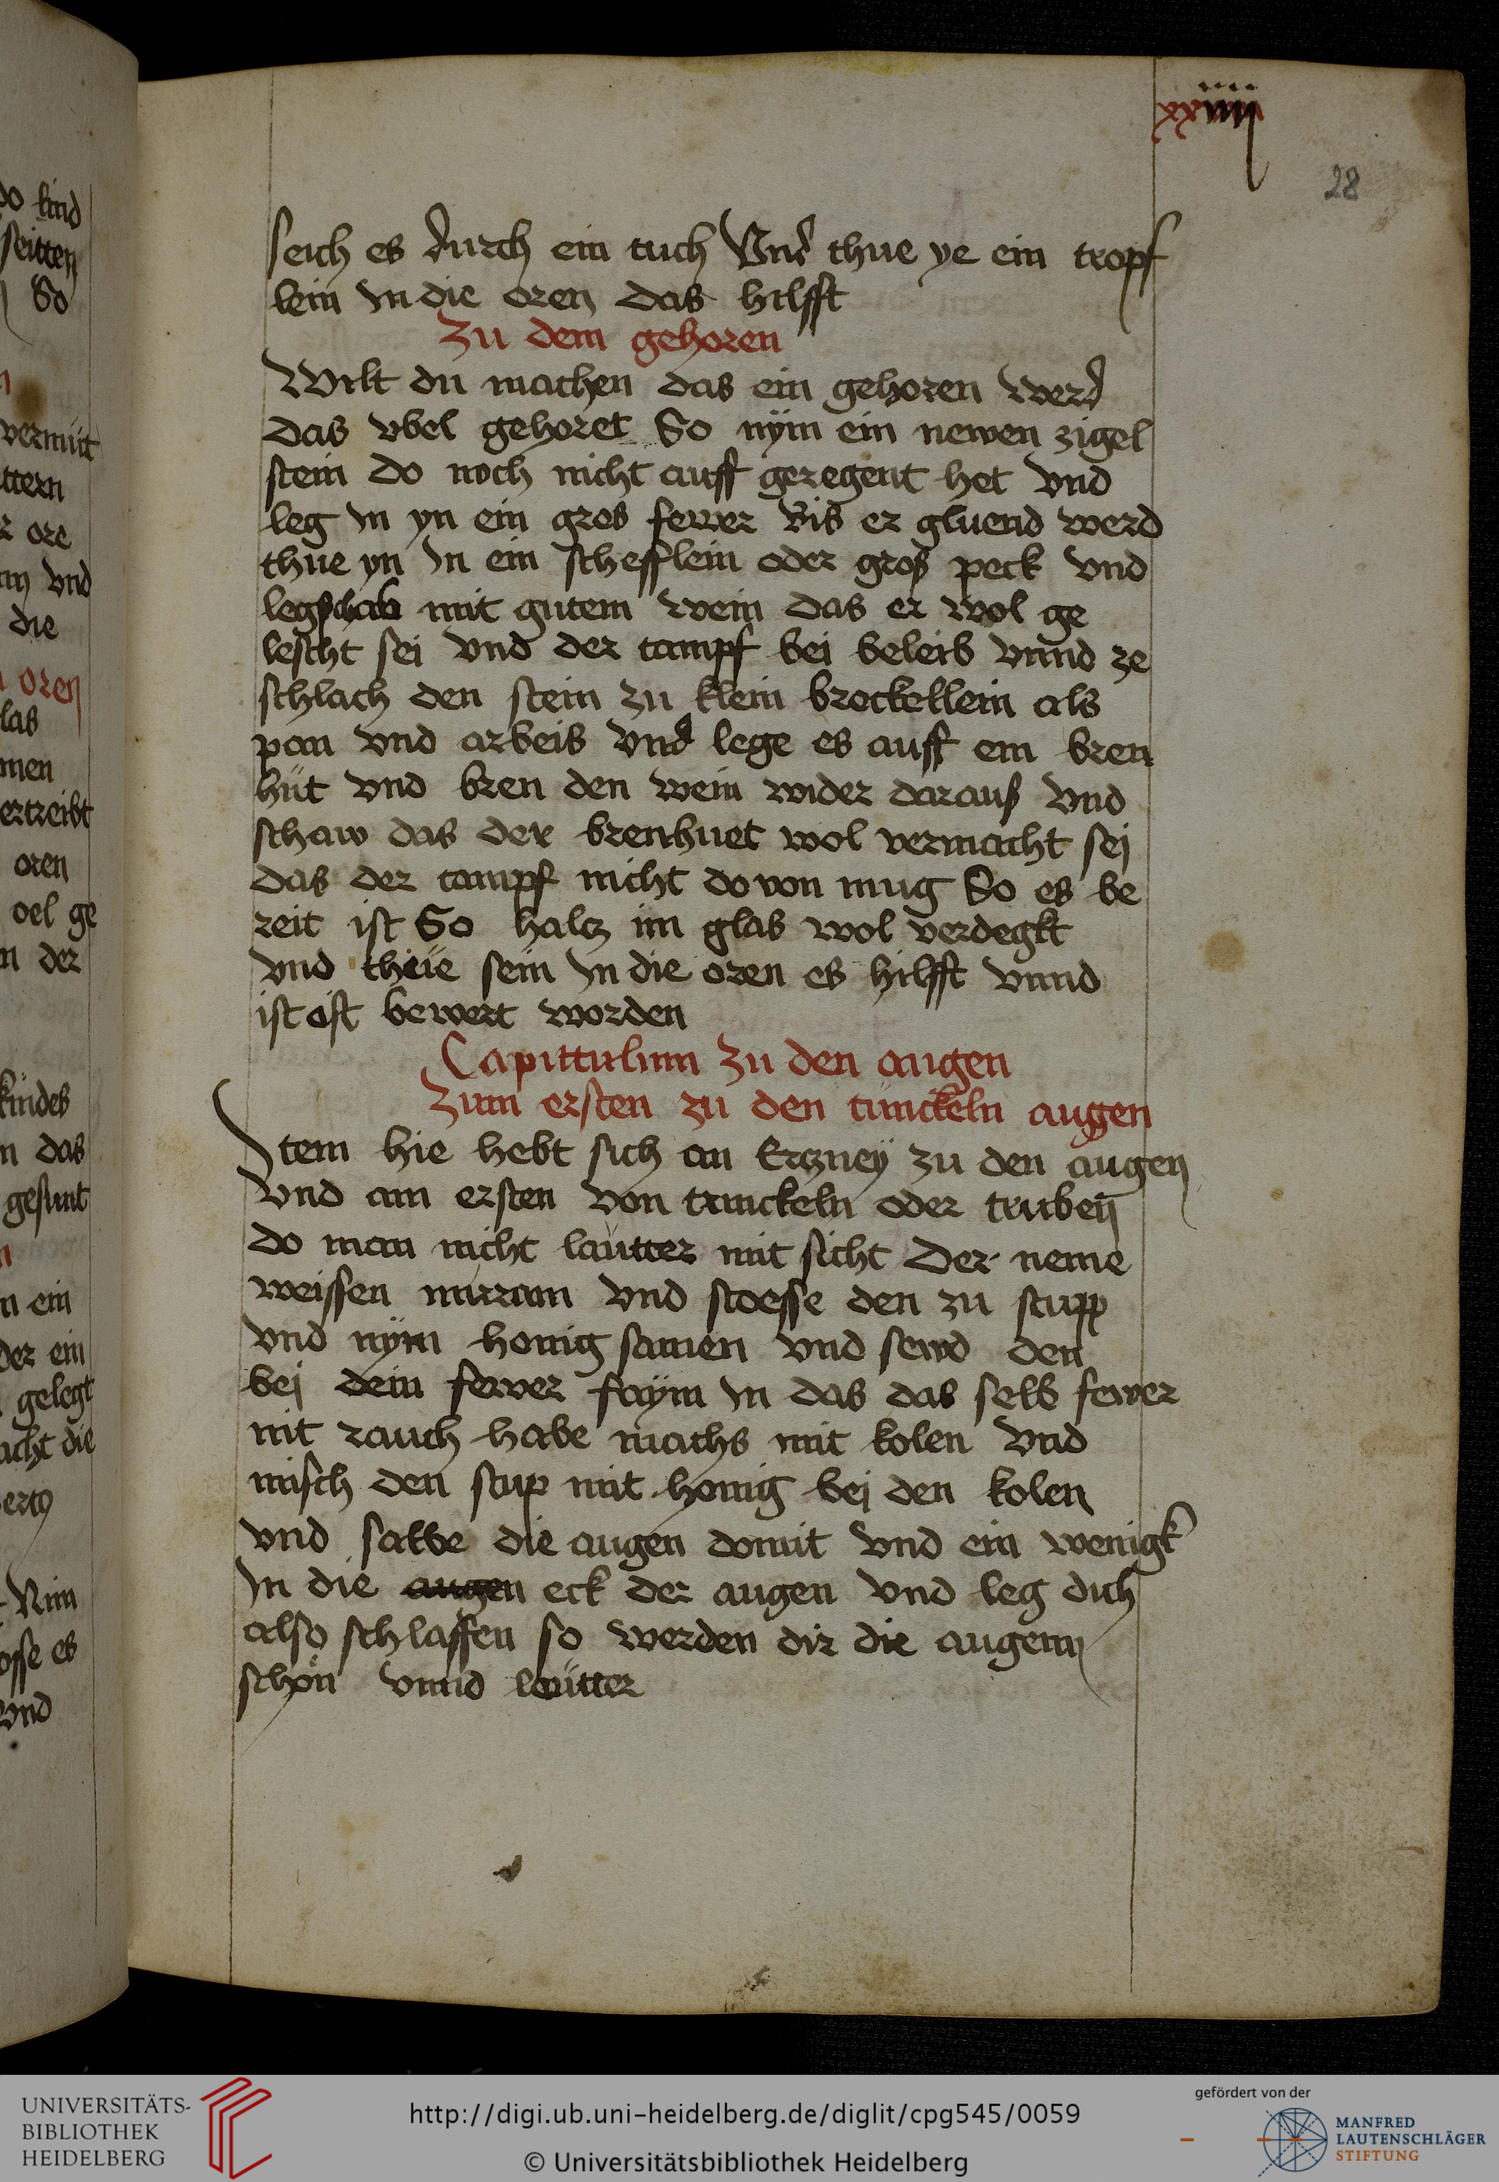 xxiiii
28
seich es durch ein tuch Vnd thue ye ein tropf
lein In die oren das hilfft
Zu dem gehoren
Wilt du machen das ein gehoren werd
das vbel gehoret So nÿm ein newen zigel
stein do noch nicht auff geregent het vnd
leg In yn ein gros fewer Bis er gluend werd
thue yn In ein schefflein oder groß peck vnd
mit gutem wein das er wol ge
lescht sei vnd der tampf bei beleib vnnd ze
schlach den stein zu klein brockellein als
pan vnd arbeis vnd lege es auff ein bren
hüt vnd bren den wein wider darauß vnd
schaw das der brenhuet wol vermacht sej
das der tampf nicht do von mug So es be
reit ist So haltz im glas wol verdegkt
vnd thüe sein In die oren es hilfft vnnd
ist oft bewert worden
Capittulum zu den augen
Zum ersten zu den tunckeln augen
Item hie hebt sich an Ertzneÿ zu den augen
vnd am ersten von tunckeln oder truben
do man nicht lautter mit sicht Der neme
weissen mirram vnd stoesse den zu stupp
vnd nÿm honig samen vnd sewd den
bej dem fewer faÿm In das das selb fewer
nit rauch habe machs mit kolen vnd
misch den stup mit honig bej den kolen
vnd salbe die augen domit vnd ein wenigk
In die augen eck der augen vnd leg dich
also schlaffen so werden dir die augenn
schön vnnd lautter
do kind
seitten
So
vermüt
ttern
r ore
vnd
die
oren
las
men
ertreibt
oren
oel ge
n der
kindes
n das
gesunt
n ein
der ein
gelegt
acht die
Nim
osse es
vnd
UNIVERSITÄTS-
BIBLIOTHEK
HEIDELBERG
http://digi.ub.uni-heidelberg.de/diglit/cpg545/0059
© Universitätsbibliothek Heidelberg
gefördert von der
MANFRED
LAUTENSCHLÄGER
STIFTUNG